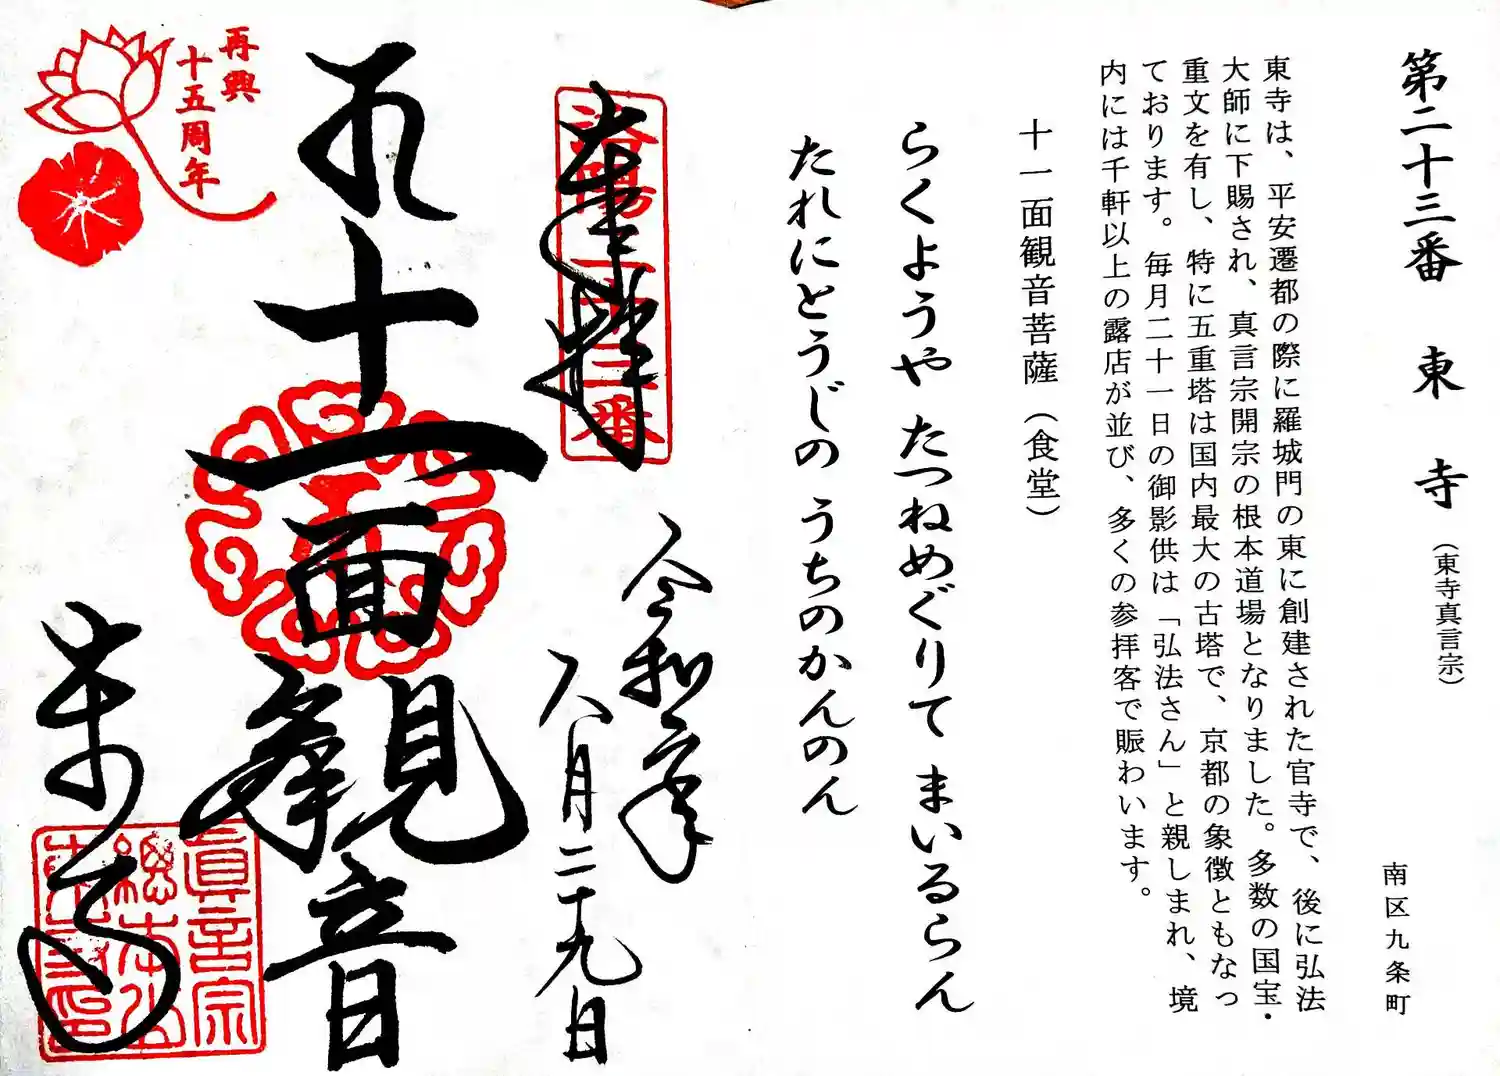 第二十三番 東寺（東寺真言宗）
南区九条町
東寺は、平安遷都の際に羅城門の東に創建された官寺で、後に弘法
大師に下賜され、真言宗開宗の根本道場となりました。多数の国宝・
重文を有し、特に五重塔は国内最大の古塔で、京都の象徴ともなっ
ております。毎月二十一日の御影供は「弘法さん」と親しまれ、境
内には千軒以上の露店が並び、多くの参拝客で賑わいます。
十一面観音菩薩（食堂）
らくようや たつねめぐりて まいるらん
たれにとうじの うちのかんのん
奉拝
洛陽二十三番
令和二年
八月二十九日
十一面観音
再興
十五周年
東寺
真言宗
總本山
東寺印